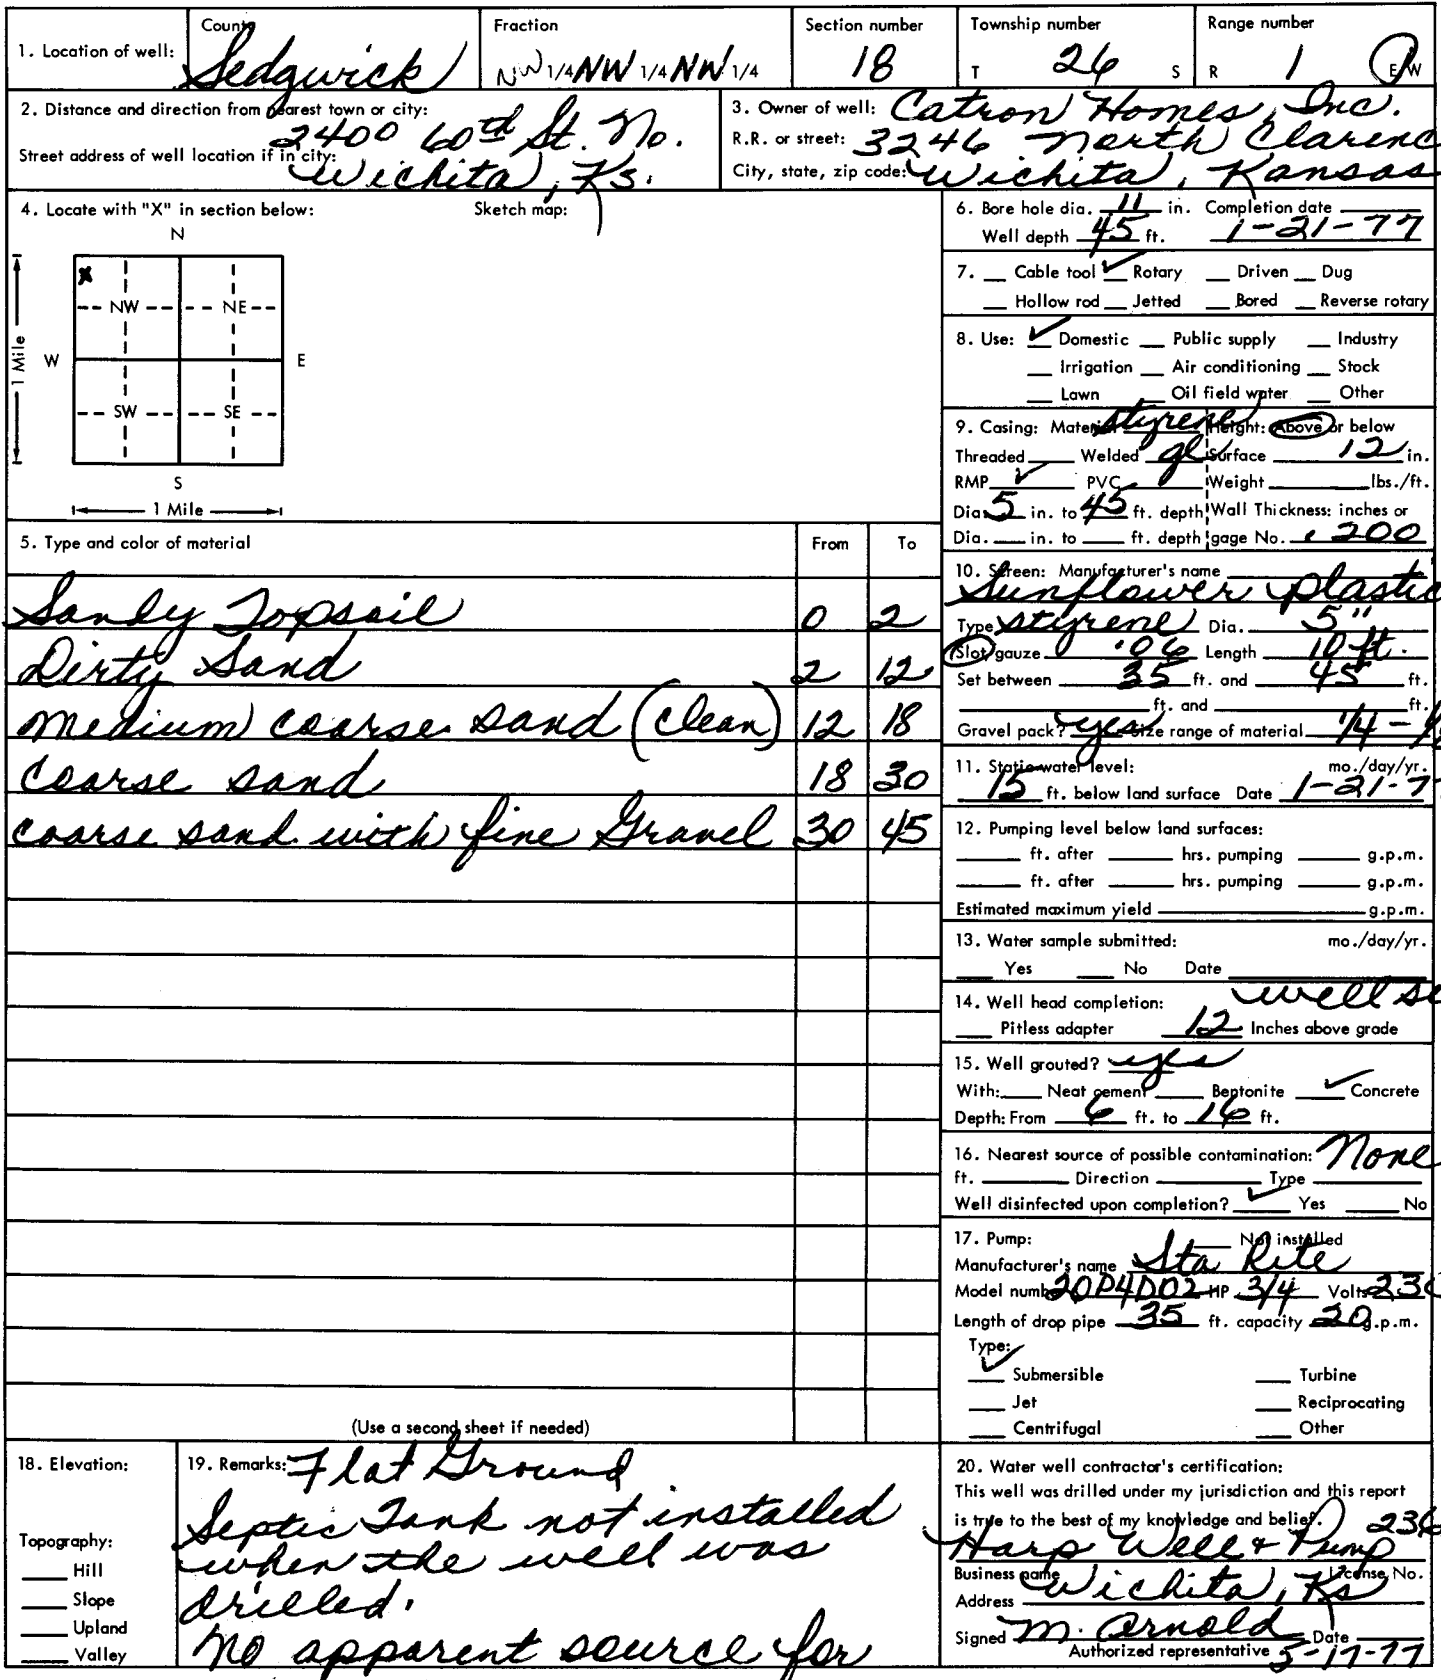 1. Location of well: County Sedgwick Fraction NW 1/4 NW 1/4 NW 1/4 Section number 18 Township number T 26 S Range number R 1 E/W
2. Distance and direction from nearest town or city: 2400 60th St. No.
Street address of well location if in city: Wichita, Ks.
3. Owner of well: Catron Homes, Inc.
R.R. or street: 3246 North Clarenc
City, state, zip code: Wichita, Kansas
4. Locate with "X" in section below: Sketch map:
N
X
NW NE
W E
SW SE
S
1 Mile
1 Mile
5. Type and color of material From To
Sandy Topsoil 0 2
Dirty Sand 2 12
Medium coarse sand (clean) 12 18
Coarse sand 18 30
coarse sand with fine Gravel 30 45
(Use a second sheet if needed)
6. Bore hole dia. 11 in. Completion date
Well depth 45 ft. 1-21-77
7. Cable tool ✓ Rotary Driven Dug
Hollow rod Jetted Bored Reverse rotary
8. Use: ✓ Domestic Public supply Industry
Irrigation Air conditioning Stock
Lawn Oil field water Other
9. Casing: Material styrene Height: Above or below
Threaded Welded gl Surface 12 in.
RMP ✓ PVC Weight lbs./ft.
Dia. 5 in. to 45 ft. depth Wall Thickness: inches or
Dia. in. to ft. depth gage No. .200
10. Screen: Manufacturer's name
Sunflower plastic
Type styrene Dia. 5"
Slot/gauze .06 Length 10 ft.
Set between 35 ft. and 45 ft.
ft. and ft.
Gravel pack? yes Size range of material 1/4 -
11. Static water level: mo./day/yr.
15 ft. below land surface Date 1-21-7
12. Pumping level below land surfaces:
ft. after hrs. pumping g.p.m.
ft. after hrs. pumping g.p.m.
Estimated maximum yield g.p.m.
13. Water sample submitted: mo./day/yr.
Yes No Date
14. Well head completion: well se
Pitless adapter 12 Inches above grade
15. Well grouted? yes
With: Neat cement Bentonite ✓ Concrete
Depth: From 6 ft. to 16 ft.
16. Nearest source of possible contamination: None
ft. Direction Type
Well disinfected upon completion? ✓ Yes No
17. Pump: Not installed
Manufacturer's name Sta Rite
Model number 20P4D02 HP 3/4 Volts 230
Length of drop pipe 35 ft. capacity 20 g.p.m.
Type:
✓ Submersible Turbine
Jet Reciprocating
Centrifugal Other
18. Elevation:
Topography:
Hill
Slope
Upland
Valley
19. Remarks: Flat Ground
Septic Tank not installed
when the well was
drilled.
No apparent source for
20. Water well contractor's certification:
This well was drilled under my jurisdiction and this report
is true to the best of my knowledge and belief. 236
Harp Well & Pump
Business name License No.
Address Wichita, Ks
Signed M. Arnold Date
Authorized representative 5-17-77